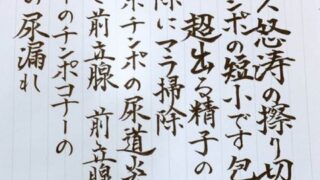 怒涛の擦り切
ンポの短小です包
超出る精子の
除にマラ掃除
ホチンポの尿道
前立腺 前立腺
のチンポコナーの
の尿漏れ